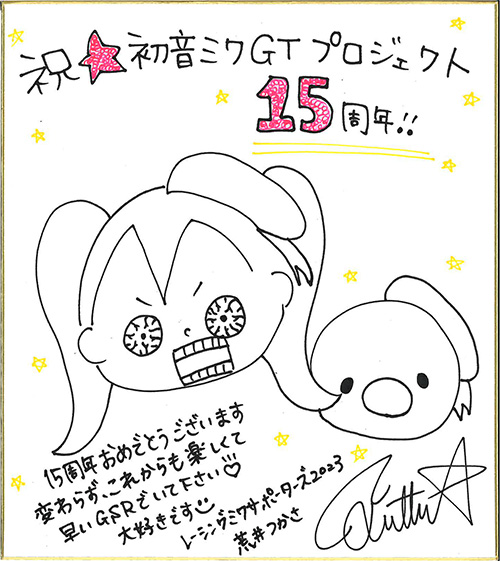 祝★初音ミクGTプロジェクト
15周年!!
15周年おめでとうございます
変わらず、これからも楽しくて
早いGSRでいて下さい!!♡
大好きです
レーシングミクサポーターズ2023
荒井つかさ